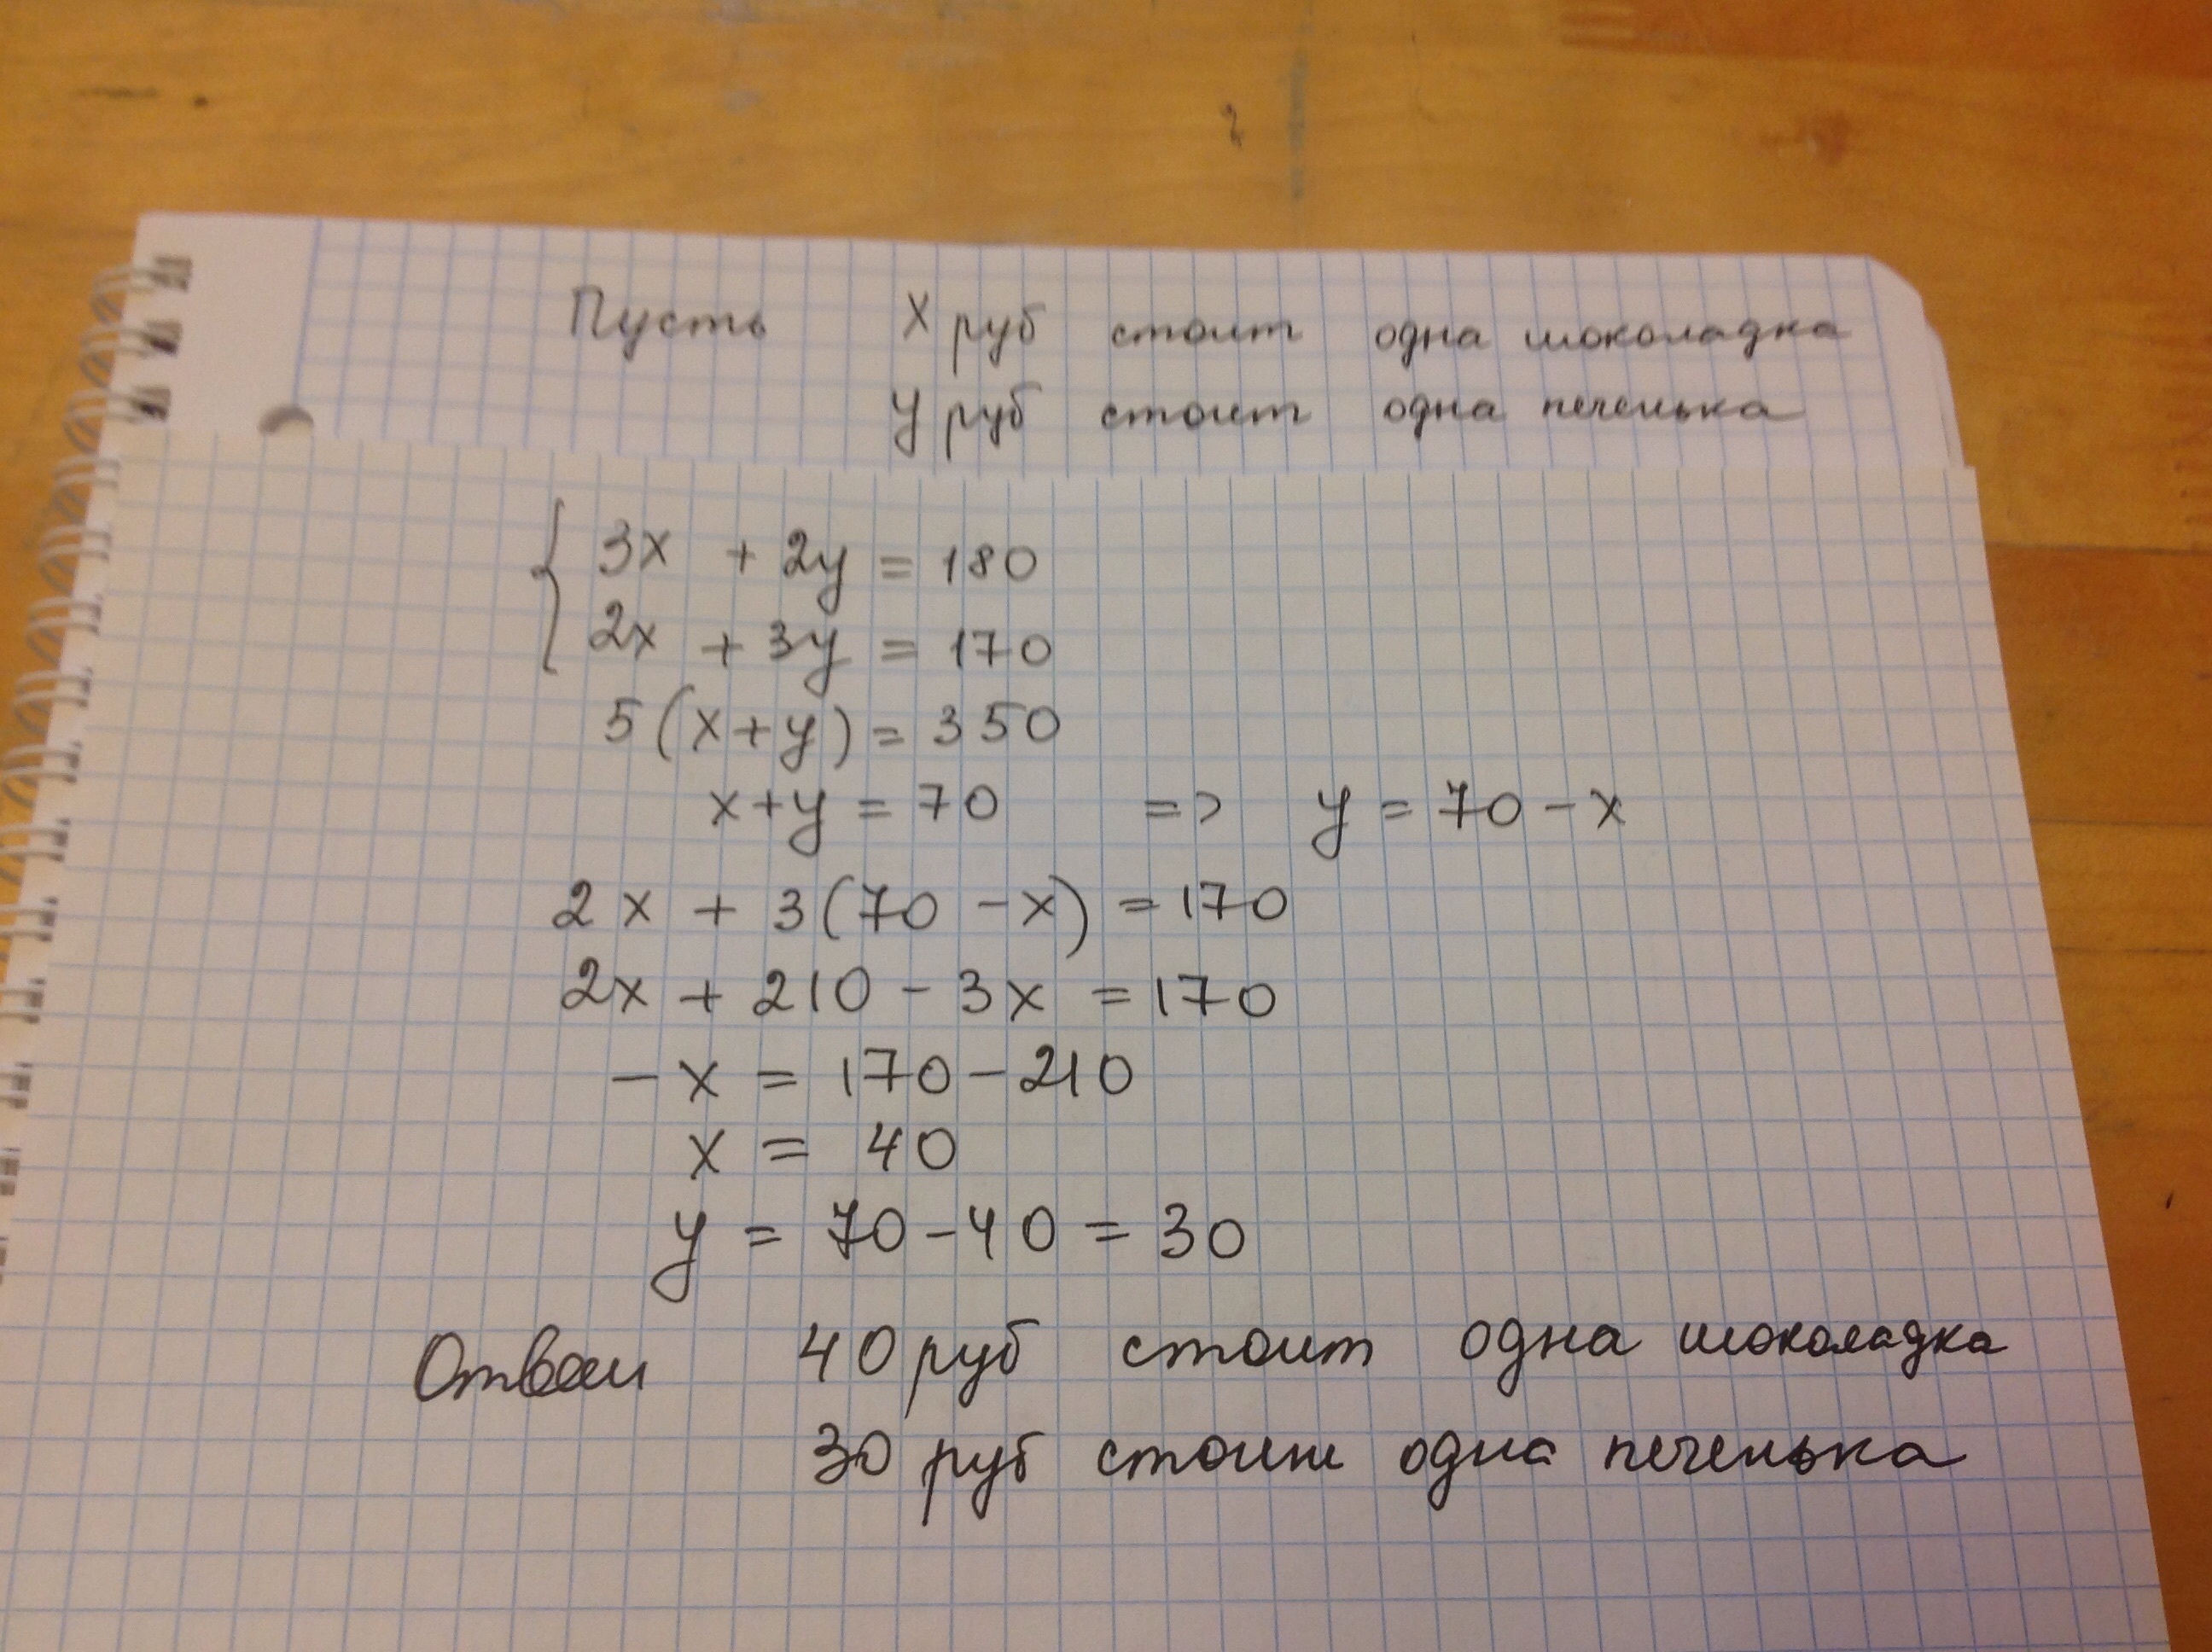 Пусть x руб стоит одна шоколадка
y руб стоит одна печенька
{ 3x + 2y = 180
2x + 3y = 170
5(x+y) = 350
x+y = 70 => y = 70 - x
2x + 3(70 - x) = 170
2x + 210 - 3x = 170
- x = 170 - 210
x = 40
y = 70 - 40 = 30
Ответ 40 руб стоит одна шоколадка
30 руб стоит одна печенька